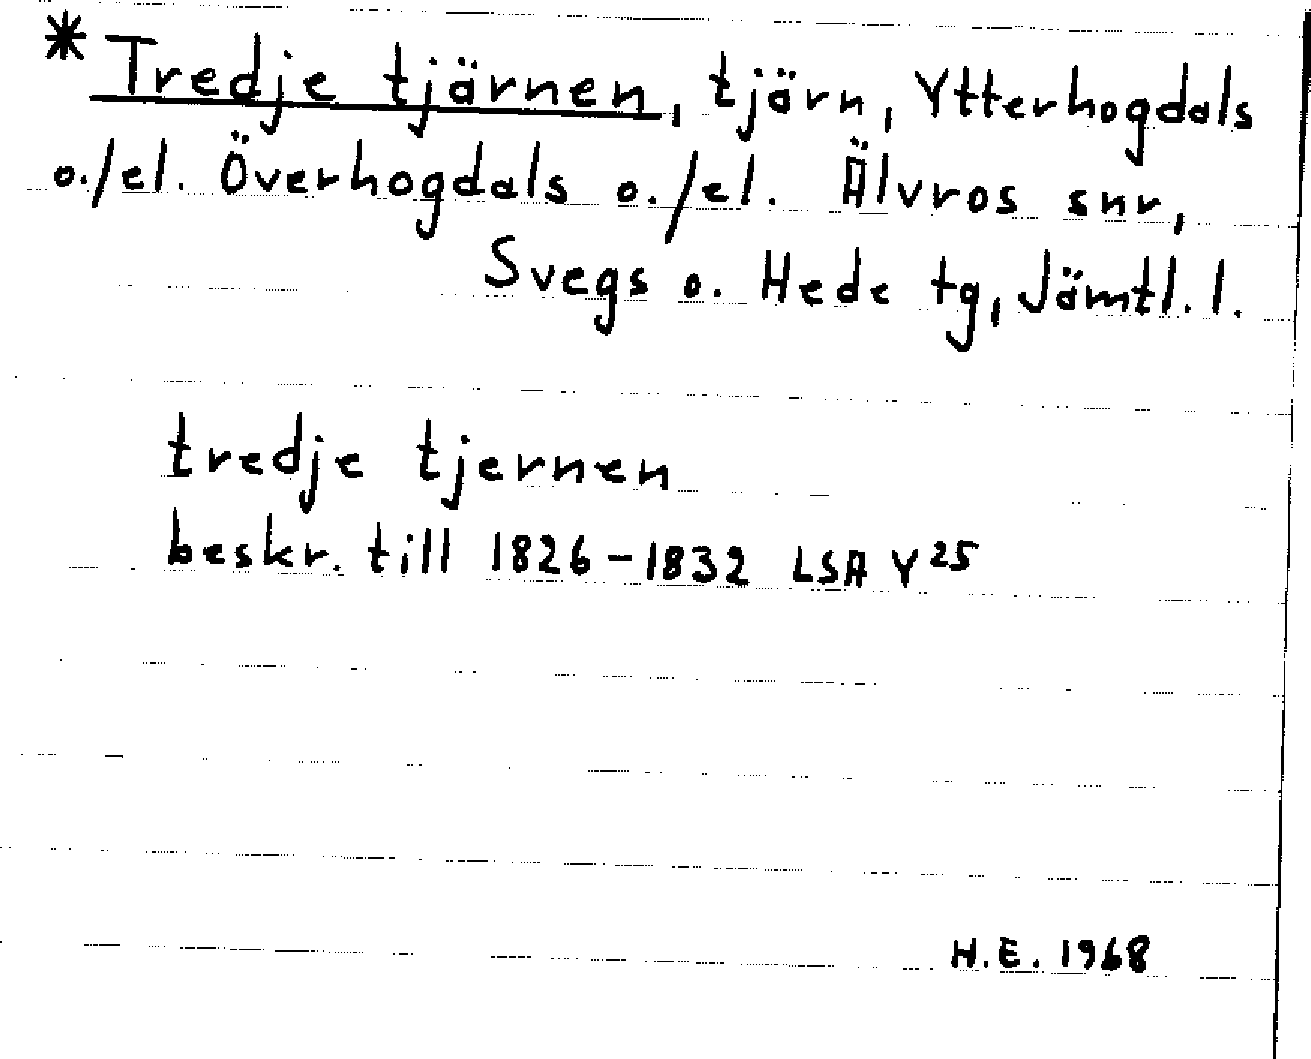 * Tredje tjärnen, tjärn, Ytterhogdals
o./el. Överhogdals o./el. Älvros snr,
Svegs o. Hede tg, Jämtl. l.
tredje tjernen
beskr. till 1826-1832 LSA Y25
H.E. 1968